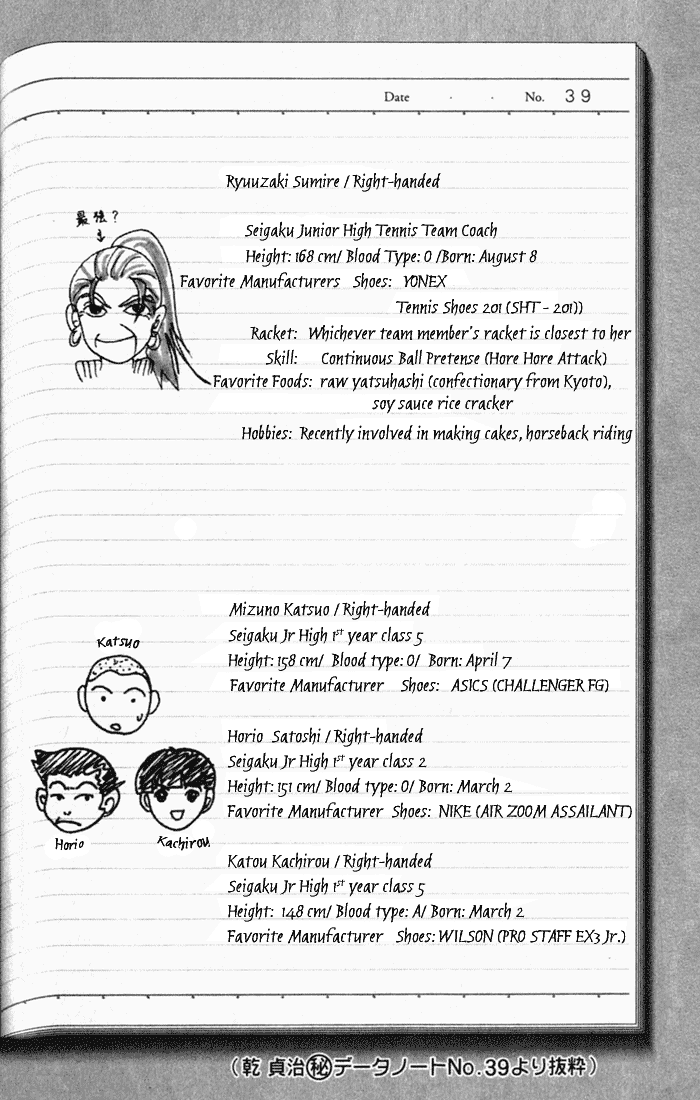 Date . . No. 39
Ryuuzaki Sumire / Right-handed
最強?
Seigaku Junior High Tennis Team Coach
Height: 168 cm/ Blood Type: O /Born: August 8
Favorite Manufacturers Shoes: YONEX
Tennis Shoes 201 (SHT - 201))
Racket: Whichever team member's racket is closest to her
Skill: Continuous Ball Pretense (Hore Hore Attack)
Favorite Foods: raw yatsuhashi (confectionary from Kyoto),
soy sauce rice cracker
Hobbies: Recently involved in making cakes, horseback riding
Mizuno Katsuo / Right-handed
Katsuo
Seigaku Jr High 1st year class 5
Height: 158 cm/ Blood type: O/ Born: April 7
Favorite Manufacturer Shoes: ASICS (CHALLENGER FG)
Horio Satoshi / Right-handed
Seigaku Jr High 1st year class 2
Height: 151 cm/ Blood type: O/ Born: March 2
Favorite Manufacturer Shoes: NIKE (AIR ZOOM ASSAILANT)
Horio
Kachirou
Katou Kachirou / Right-handed
Seigaku Jr High 1st year class 5
Height: 148 cm/ Blood type: A/ Born: March 2
Favorite Manufacturer Shoes: WILSON (PRO STAFF EX3 Jr.)
(乾 貞治㊙データノートNo.39より抜粋)